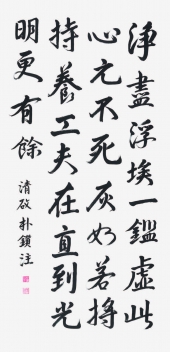 淨盡浮埃一鑑虛此
心元不死灰如若將
持養工夫在直到光
明更有餘
清啟朴鎖注